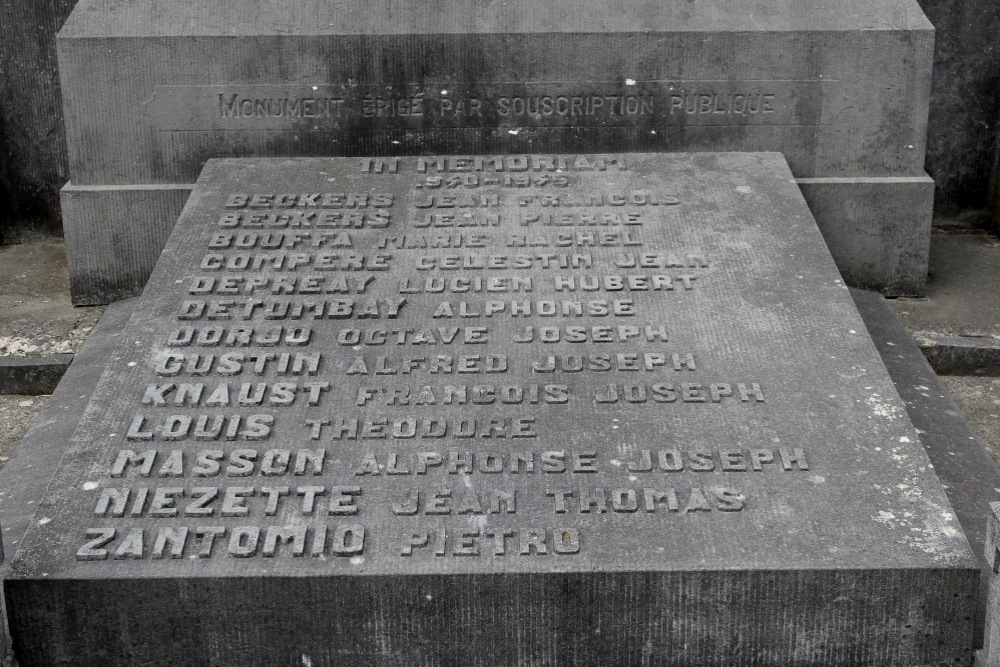 MONUMENT ÉRIGÉ PAR SOUSCRIPTION PUBLIQUE
IN MEMORIAM
1940-1945
BECKERS JEAN FRANCOIS
BECKERS JEAN PIERRE
BOUFFA MARIE RACHEL
COMPERE CELESTIN JEAN
DEPREAY LUCIEN HUBERT
DETUMBAY ALPHONSE
DORJO OCTAVE JOSEPH
GUSTIN ALFRED JOSEPH
KNAUST FRANCOIS JOSEPH
LOUIS THEODORE
MASSON ALPHONSE JOSEPH
NIEZETTE JEAN THOMAS
ZANTOMIO PIETRO